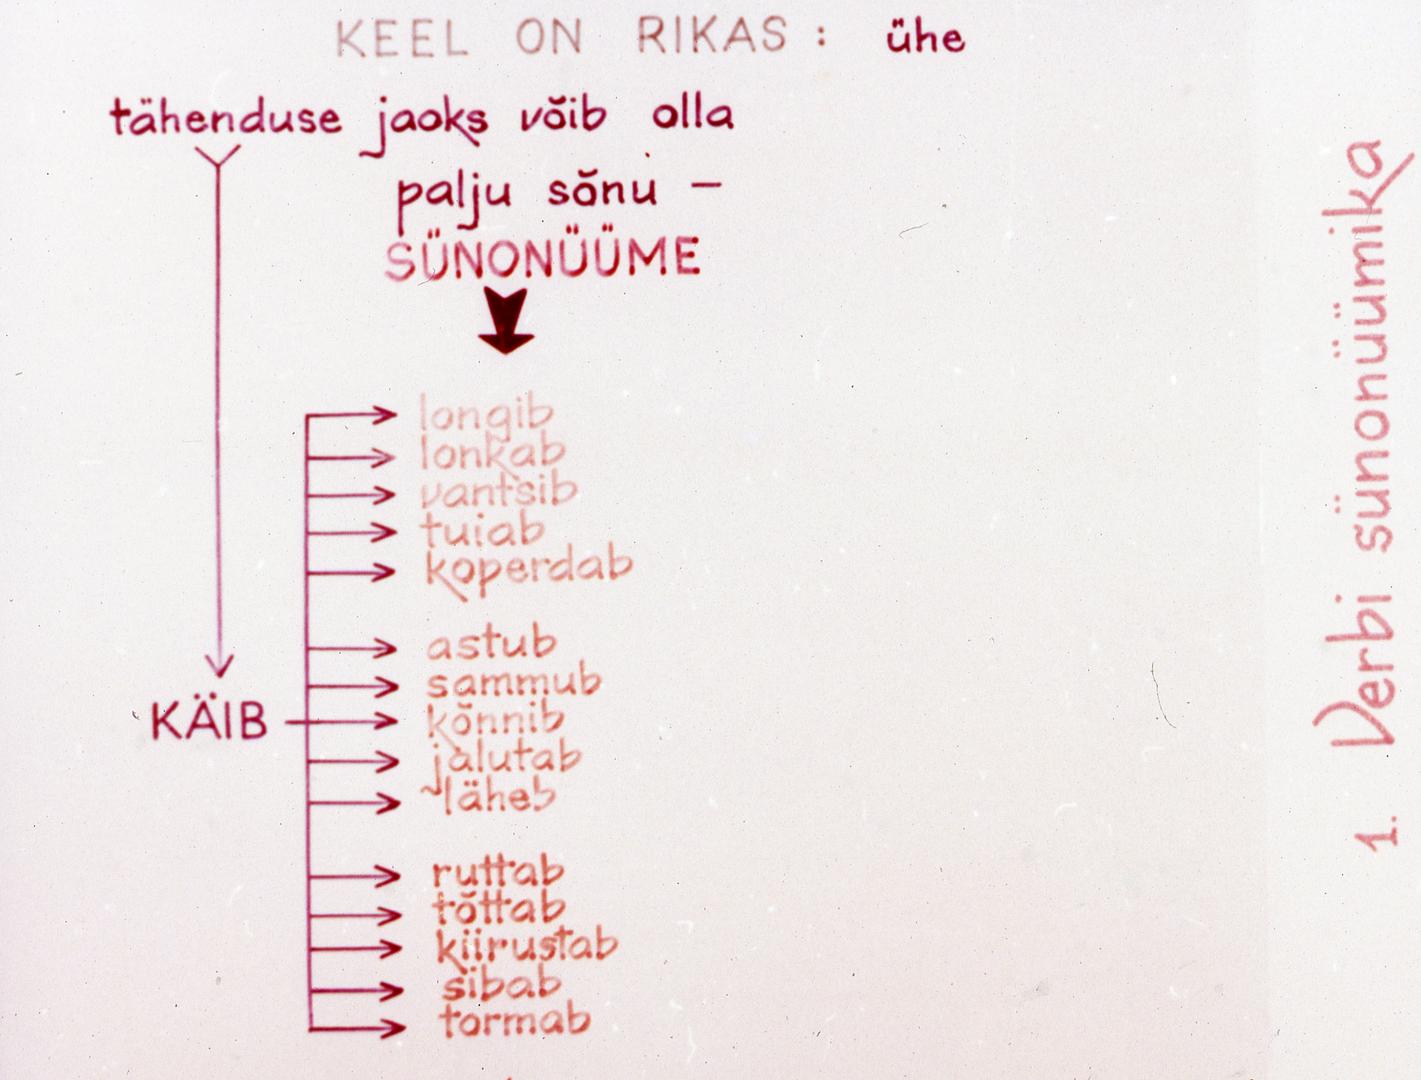 KEEL ON RIKAS: ühe
tähenduse jaoks võib olla
palju sõnu –
SÜNONÜÜME
longib
lonkab
vantsib
tuiab
koperdab
astub
sammub
KÄIB kõnnib
jalutab
läheb
ruttab
tõttab
kiirustab
sibab
tormab
1. Verbi sünonüümika